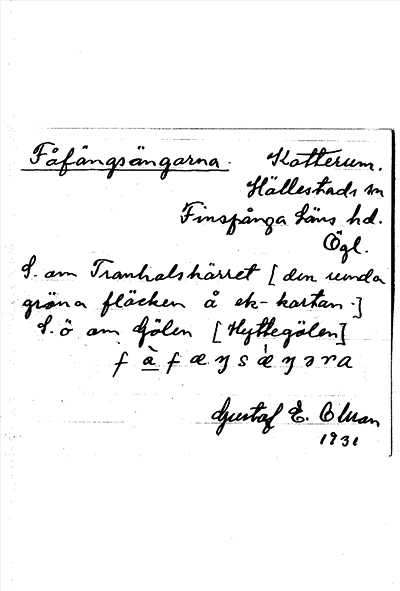 Fåfängsängarna. Katterum.
Hällestads sn
Finspånga läns hd.
Ögl.
S. om Tranhalskärret [den runda
gröna fläcken å ek-kartan.]
S. ö om Gölen [Hyttegölen]
f à f æ ŋ s æ̀ ŋ ə r a
Gustaf E. Olman
1931